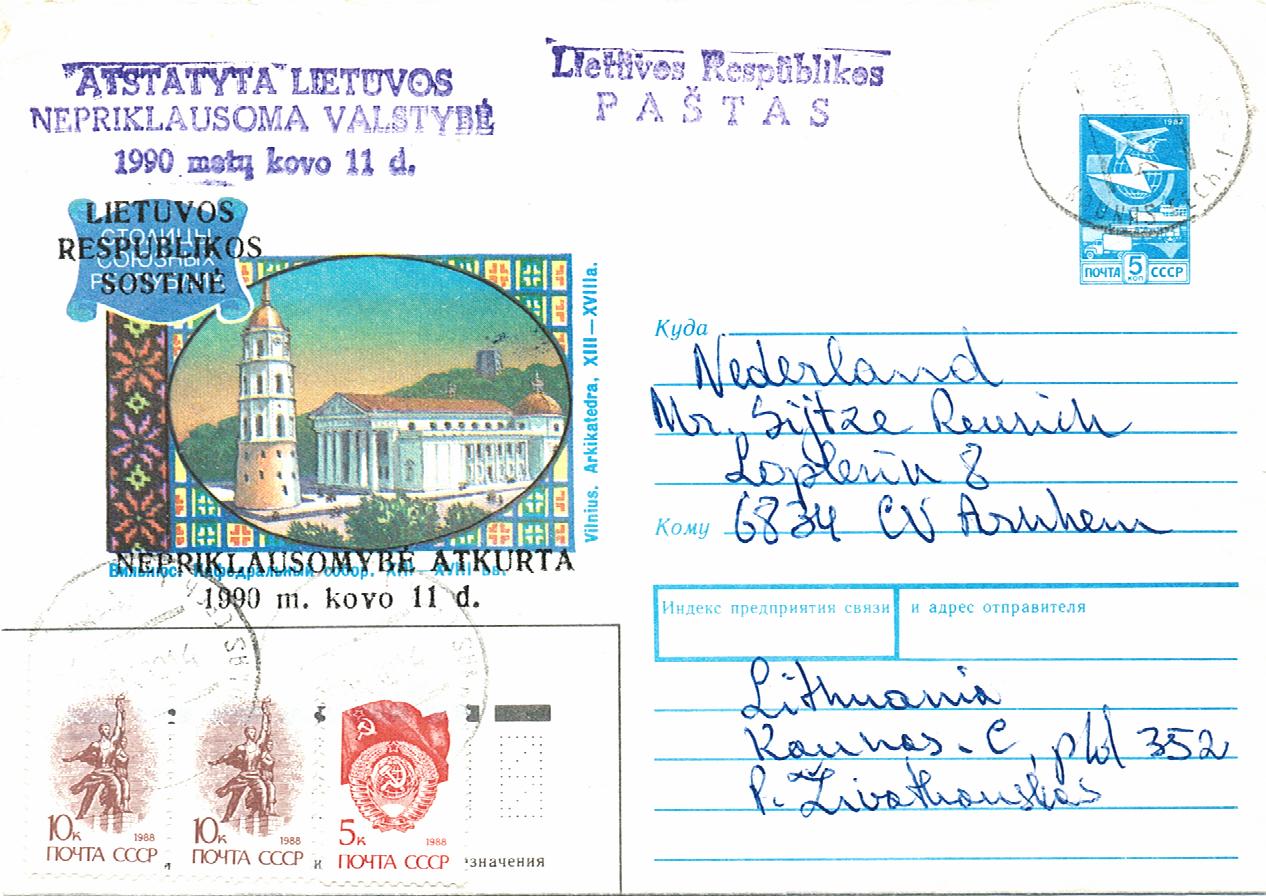 "ATSTATYTA" LIETUVOS
NEPRIKLAUSOMA VALSTYBĖ
1990 metų kovo 11 d.
Lietuvos Respublikos
PAŠTAS
1982
ПОЧТА 5 КОП СССР
KAUNAS
LIETUVOS
RESPUBLIKOS
SOSTINĖ
СТОЛИЦЫ
СОЮЗНЫХ
Vilnius. Arkikatedra, XIII–XVIIIa.
NEPRIKLAUSOMYBĖ ATKURTA
Вильнюс. Кафедральный собор. XIII–XVIII вв.
1990 m. kovo 11 d.
Куда
Nederland
Mr. Sijtze Reurich
Loplerin 8
Кому 6834 CV Arnhem
Индекс предприятия связи и адрес отправителя
Lithuania
Kaunas-C, pld 352
P.
10к 1988
ПОЧТА СССР
10к 1988
ПОЧТА СССР
5к 1988
ПОЧТА СССР
значения